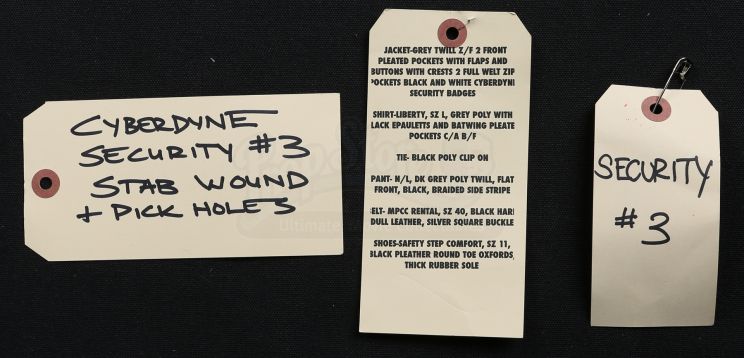 CYBERDYNE
SECURITY #3
STAB WOUND
+ DICK HOLES
JACKET-GREY TWILL Z/F 2 FRONT
PLEATED POCKETS WITH FLAPS AND
BUTTONS WITH CRESTS 2 FULL WELT ZIP
POCKETS BLACK AND WHITE CYBERDYNE
SECURITY BADGES
SHIRT-LIBERTY, SZ L, GREY POLY WITH
LACK EPAULETTS AND BATWING PLEATE
POCKETS C/A B/F
TIE- BLACK POLY CLIP ON
PANT- N/L, DK GREY POLY TWILL, FLAT
FRONT, BLACK, BRAIDED SIDE STRIPE
ELT- MPCC RENTAL, SZ 40, BLACK HARI
DULL LEATHER, SILVER SQUARE BUCKLE
SHOES-SAFETY STEP COMFORT, SZ 11,
BLACK PLEATHER ROUND TOE OXFORDS,
THICK RUBBER SOLE
SECURITY
#3